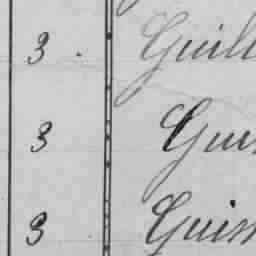 3 Guill
3 Gui
3 Guis